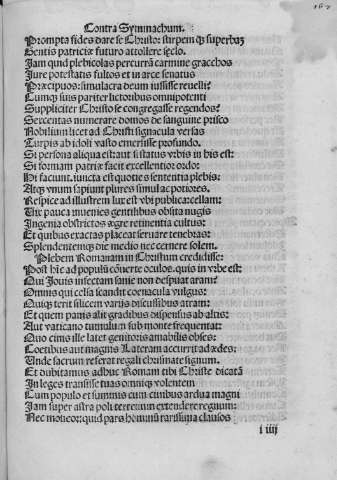 Contra Symmachum.
Prompta fides dare se Christo: stirpemq3 superbam
Gentis patriciæ futuro attollere seclo.
Jam quid plebicolas percurrā carmine gracchos
Jure potestatis fultos et in arce senatus
Præcipuos: simulacra deum iussisse reuelli?
Cumq3 suis pariter lictoribus omnipotenti
Suppliciter Christo se congregasse regendos?
Sexcentas numerare domos de sanguine prisco
Nobilium licet ad Christi signacula versas
Turpis ab idoli vasto emersisse profundo.
Si persona aliqua est: aut si status vrbis in his est:
Si formam patriæ facit excellentior ordo:
Hi faciunt. iuncta est quoties sententia plebis:
Atq3 vnum sapiunt plures simul ac potiores.
Respice ad illustrem lux est vbi publica: cellam:
Vix pauca inuenies gentilibus obsita nugis
Ingenia obstrictos ægre retinentia cultus:
Et quibus exactas placeat seruare tenebras:
Splendentemq3 die medio nec cernere solem.
Plebem Romanam in Christum credidisse:
Post hīc ad populū cōuerte oculos. quis in vrbe est:
Qui Jouis infectam sanie non despuat aram?
Omnis qui celsa scandit coenacula vulgus:
Quiq3 terit silicem varijs discussibus atram:
Et quem panis alit gradibus dispensus ab altis:
Aut vaticano tumulum sub monte frequentat:
Quo cinis ille latet genitoris amabilis obses:
Coetibus aut magnis Lateram accurrit ad ædes:
Vnde sacrum referat regali chrismate signum.
Et dubitamus adhuc Romam tibi Christe dicatā
In leges transisse tuas omniq3 volentem
Cum populo et summis cum ciuibus ardua magni
Jam super astra poli terrenum extendere regnum:
Nec moueor: quid pars hominū rarissima clausos
i iiij